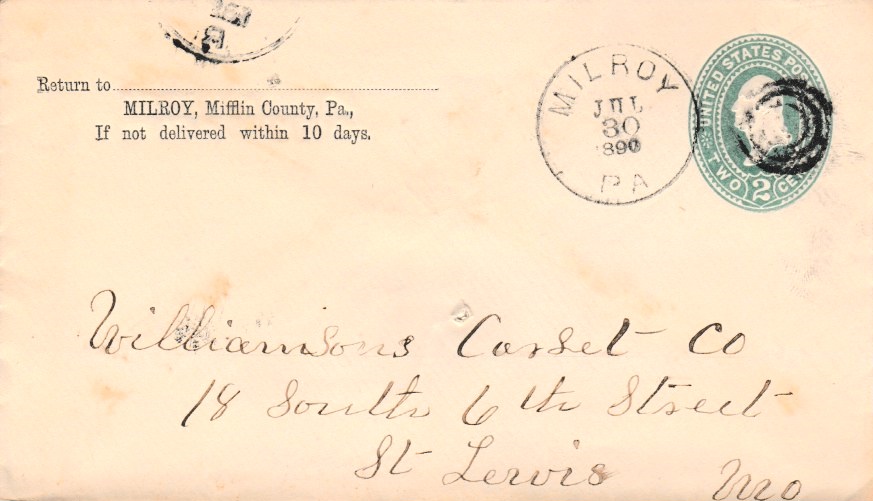 Return to
MILROY, Mifflin County, Pa.,
If not delivered within 10 days.
MILROY
JUL
30
1890
PA
UNITED STATES POS
TWO 2 CE
Williamsons Corset Co
18 South 6th Street
St Lewis Mo